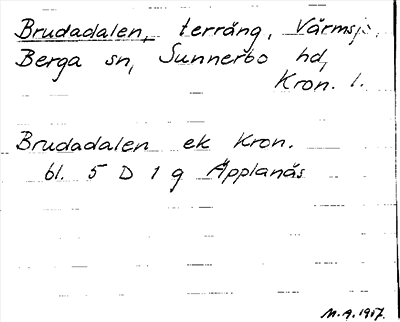 Brudadalen, terräng, Värmsjö,
Berga sn, Sunnerbo hd,
Kron. l.
Brudadalen ek Kron.
bl. 5 D 1 g Äpplanäs
M.A. 1957.